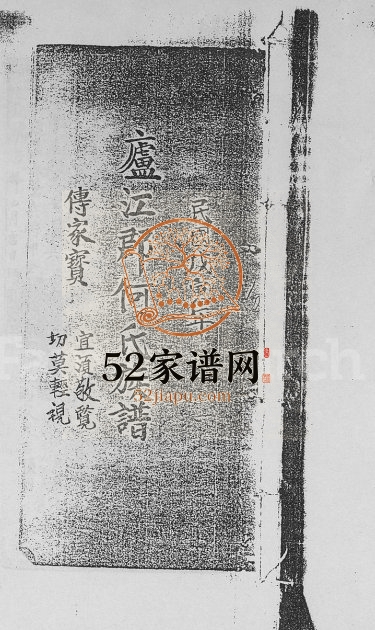 民國戊寅年
廬江郡何氏族譜
傳家寳
宜須敬覽
切莫輕視
52家谱网
52jiapu.com